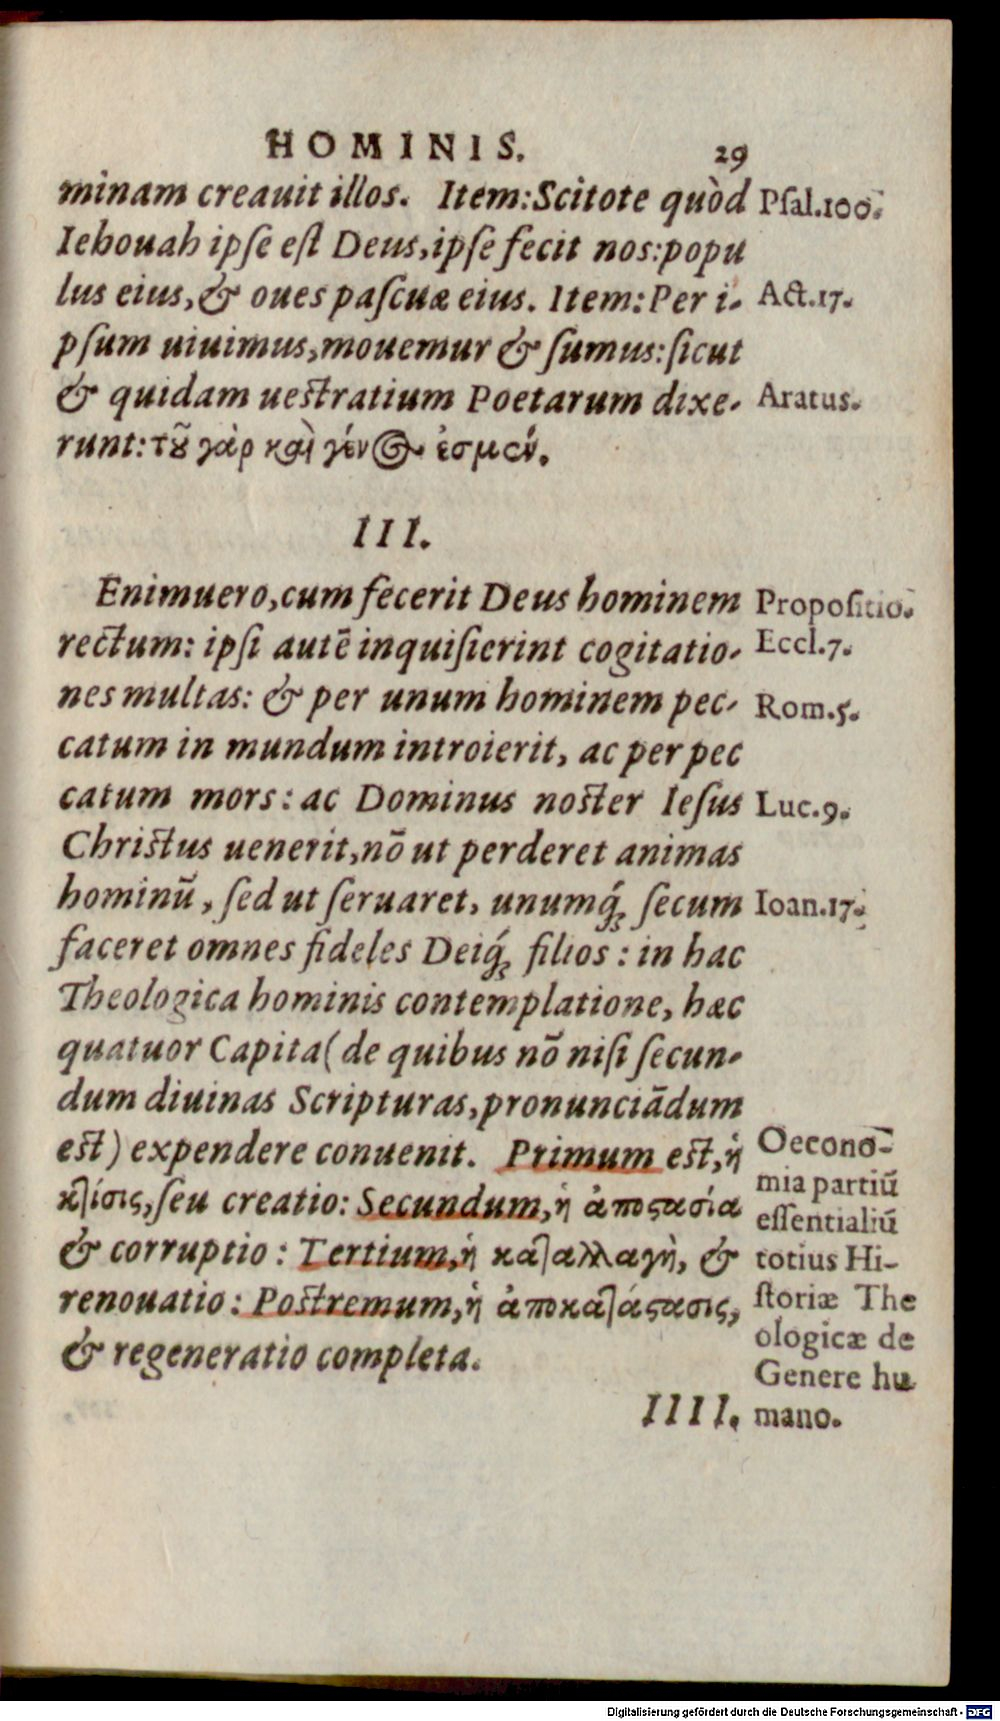 HOMINIS. 29
minam creauit illos. Item: Scitote quòd
Iehouah ipſe eſt Deus, ipſe fecit nos: popu
lus eius, & oues paſcuæ eius. Item: Per i-
pſum uiuimus, mouemur & ſumus: ſicut
& quidam ueſtratium Poetarum dixe-
runt: τοῦ γὰρ καὶ γένος ἐσμέν.
Pſal.100.
Act.17.
Aratus.
III.
Enimuero, cum fecerit Deus hominem
rectum: ipſi autẽ inquiſierint cogitatio-
nes multas: & per unum hominem pec-
catum in mundum introierit, ac per pec
catum mors: ac Dominus noſter Ieſus
Chriſtus uenerit, nõ ut perderet animas
hominũ, ſed ut ſeruaret, unumq́; ſecum
faceret omnes fideles Deiq́; filios: in hac
Theologica hominis contemplatione, hæc
quatuor Capita (de quibus nõ niſi ſecun-
dum diuinas Scripturas, pronunciãdum
eſt) expendere conuenit. Primum eſt, ἡ
κτίσις, ſeu creatio: Secundum, ἡ ἀποστασία
& corruptio: Tertium, ἡ καταλλαγὴ, &
renouatio: Poſtremum, ἡ ἀποκατάστασις,
& regeneratio completa.
Propoſitio.
Eccl.7.
Rom.5.
Luc.9.
Ioan.17.
Oecono-
mia partiũ
eſſentialiũ
totius Hi-
ſtoriæ The
ologicæ de
Genere hu
mano.
IIII.
Digitalisierung gefördert durch die Deutsche Forschungsgemeinschaft - DFG